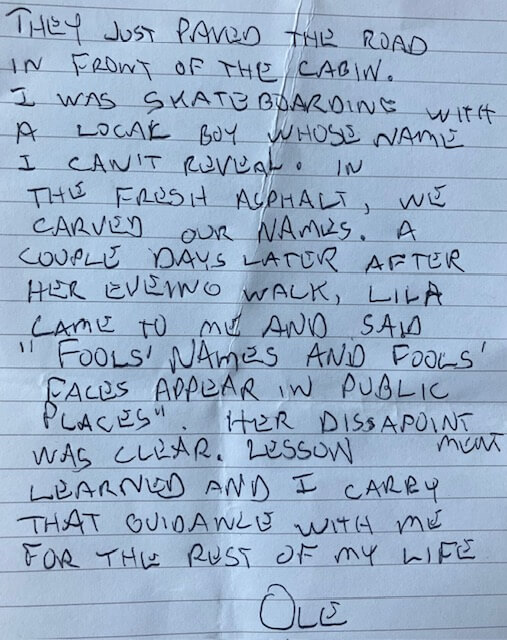 THEY JUST PAVED THE ROAD
IN FRONT OF THE CABIN.
I WAS SKATEBOARDING WITH
A LOCAL BOY WHOSE NAME
I CAN'T REVEAL. IN
THE FRESH ASPHALT, WE
CARVED OUR NAMES. A
COUPLE DAYS LATER AFTER
HER EVEING WALK, LILA
CAME TO ME AND SAID
"FOOLS' NAMES AND FOOLS'
FACES APPEAR IN PUBLIC
PLACES". HER DISSAPOINTMENT
WAS CLEAR. LESSON
LEARNED AND I CARRY
THAT GUIDANCE WITH ME
FOR THE REST OF MY LIFE
OLE